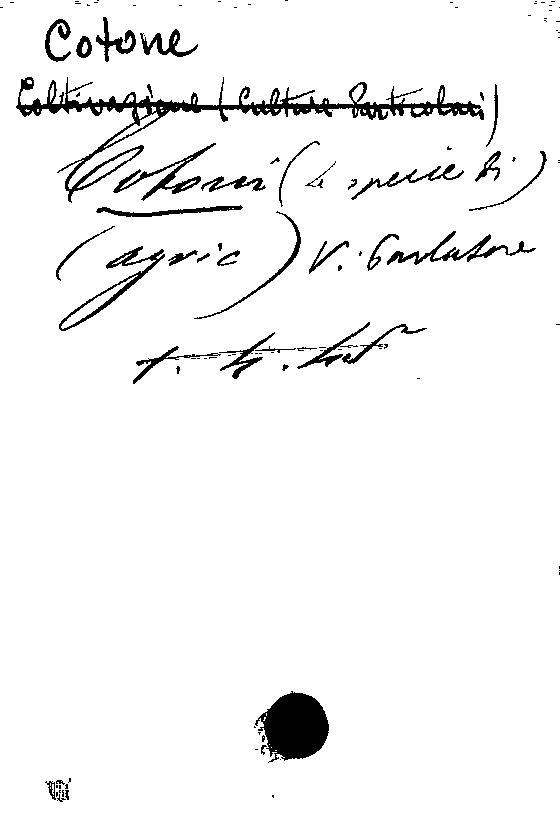 Cotone
Coltivazione (Culture Particolari)
Cotoni (Le specie di)
(agric) V.